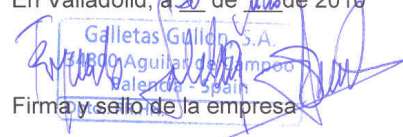 En Valladolid, a 30 de Julio de 2010
Galletas Gullón, S.A.
34800 Aguilar de Campoo
Palencia - Spain
Firma y sello de la empresa